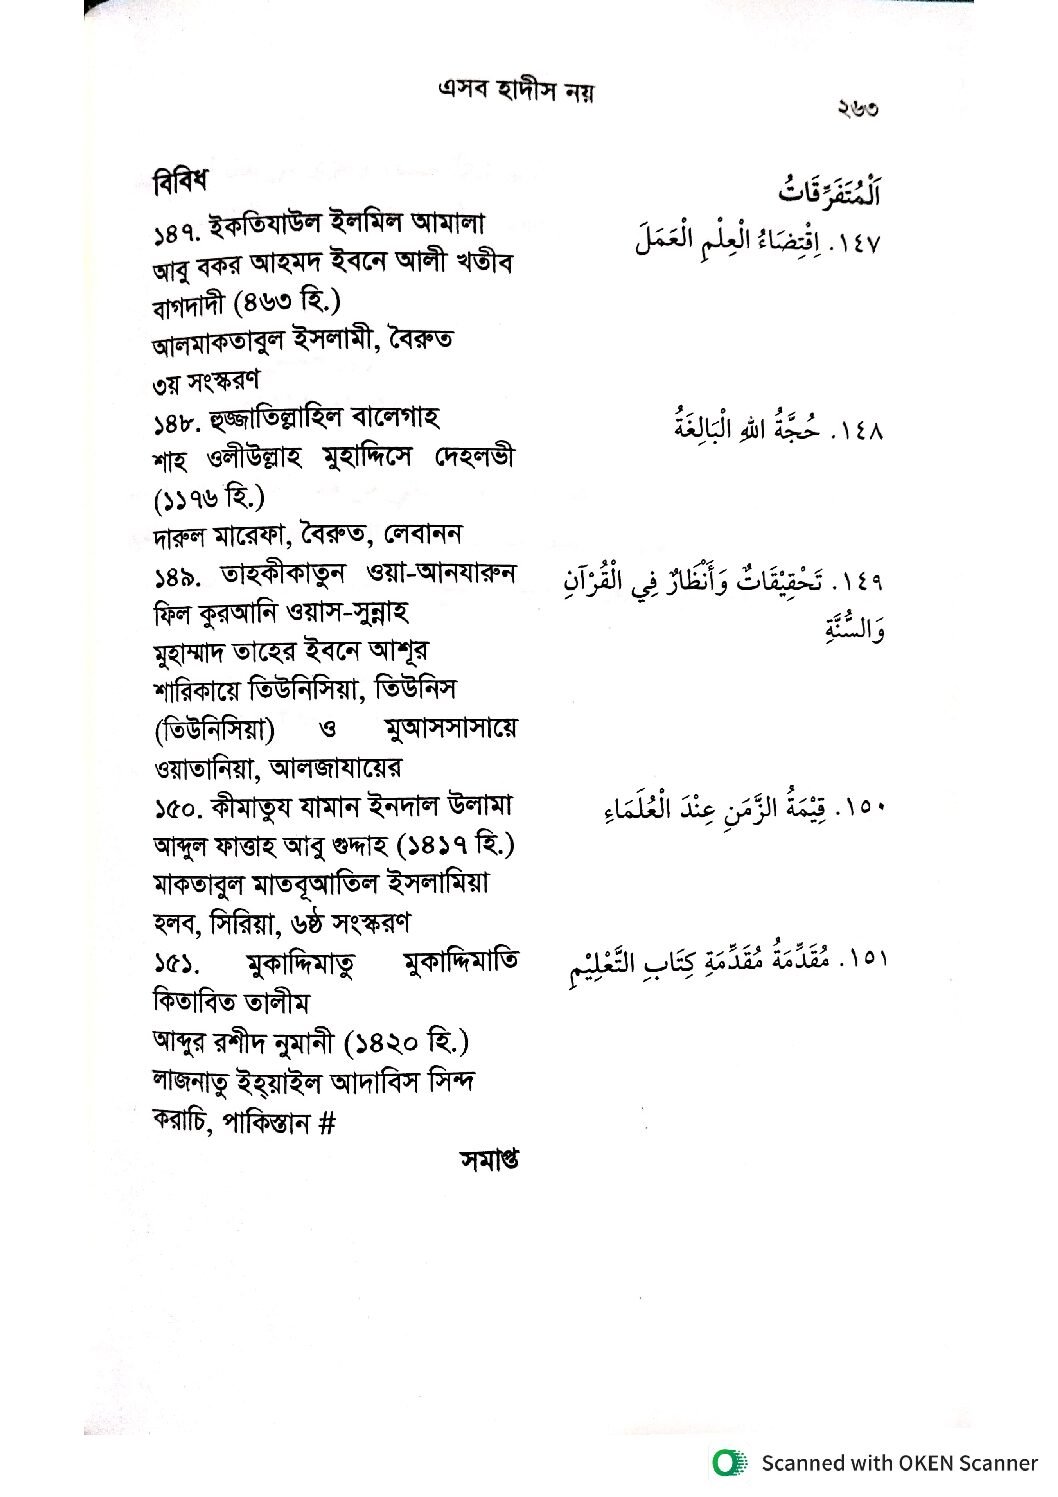 এসব হাদীস নয়
২৬৩
বিবিধ
اَلْمُتَفَرِّقَاتُ
১৪৭. ইকতিযাউল ইলমিল আমালা
١٤٧. اِقْتِضَاءُ الْعِلْمِ الْعَمَلَ
আবু বকর আহমদ ইবনে আলী খতীব
বাগদাদী (৪৬৩ হি.)
আলমাকতাবুল ইসলামী, বৈরুত
৩য় সংস্করণ
১৪৮. হুজ্জাতিল্লাহিল বালেগাহ
١٤٨. حُجَّةُ اللهِ الْبَالِغَةُ
শাহ ওলীউল্লাহ মুহাদ্দিসে দেহলভী
(১১৭৬ হি.)
দারুল মারেফা, বৈরুত, লেবানন
১৪৯. তাহকীকাতুন ওয়া-আনযারুন
١٤٩. تَحْقِيْقَاتٌ وَأَنْظَارٌ فِي الْقُرْآنِ
ফিল কুরআনি ওয়াস-সুন্নাহ
وَالسُّنَّةِ
মুহাম্মাদ তাহের ইবনে আশূর
শারিকায়ে তিউনিসিয়া, তিউনিস
(তিউনিসিয়া) ও মুআসসাসায়ে
ওয়াতানিয়া, আলজাযায়ের
১৫০. কীমাতুয যামান ইনদাল উলামা
١٥٠. قِيْمَةُ الزَّمَنِ عِنْدَ الْعُلَمَاءِ
আব্দুল ফাত্তাহ আবু গুদ্দাহ (১৪১৭ হি.)
মাকতাবুল মাতবূআতিল ইসলামিয়া
হলব, সিরিয়া, ৬ষ্ঠ সংস্করণ
১৫১. মুকাদ্দিমাতু মুকাদ্দিমাতি
١٥١. مُقَدِّمَةُ مُقَدِّمَةِ كِتَابِ التَّعْلِيْمِ
কিতাবিত তালীম
আব্দুর রশীদ নুমানী (১৪২০ হি.)
লাজনাতু ইহ্য়াইল আদাবিস সিন্দ
করাচি, পাকিস্তান #
সমাপ্ত
Scanned with OKEN Scanner